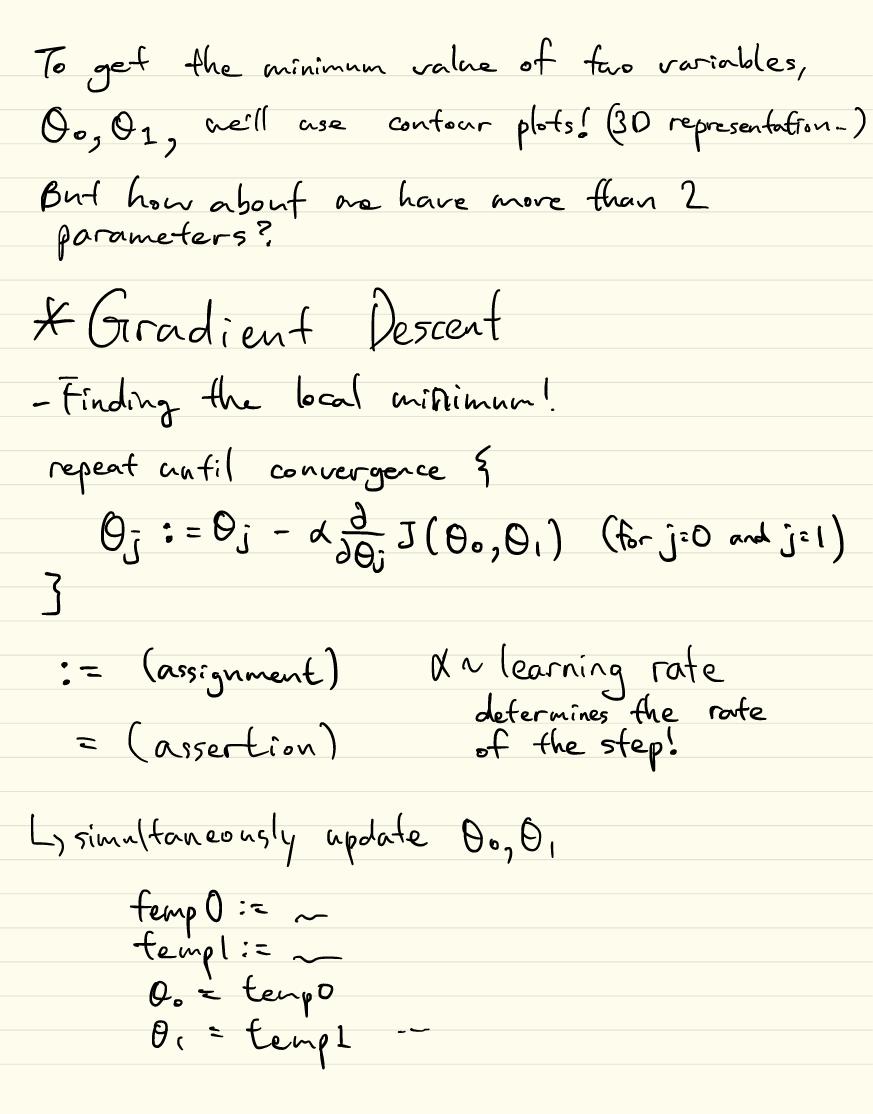 To get the minimum value of two variables,
θ₀, θ₁, we'll use contour plots! (3D representation..)
But how about we have more than 2
parameters?
* Gradient Descent
- Finding the local minimum!
repeat until convergence {
θj := θj - α ∂/∂θj J(θ₀, θ₁) (for j=0 and j=1)
}
:= (assignment) α ~ learning rate
determines the rate
= (assertion) of the step!
↳ simultaneously update θ₀, θ₁
temp0 := ~
temp1 := ~
θ₀ = temp0
θ₁ = temp1 --